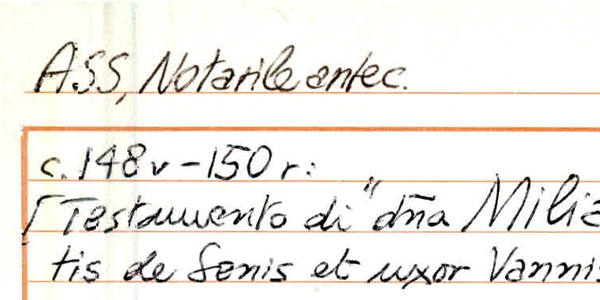 ASS, Notarile antec.
c. 148v - 150r:
[Testamento di "dña Milia
tis de Senis et uxor Vannis